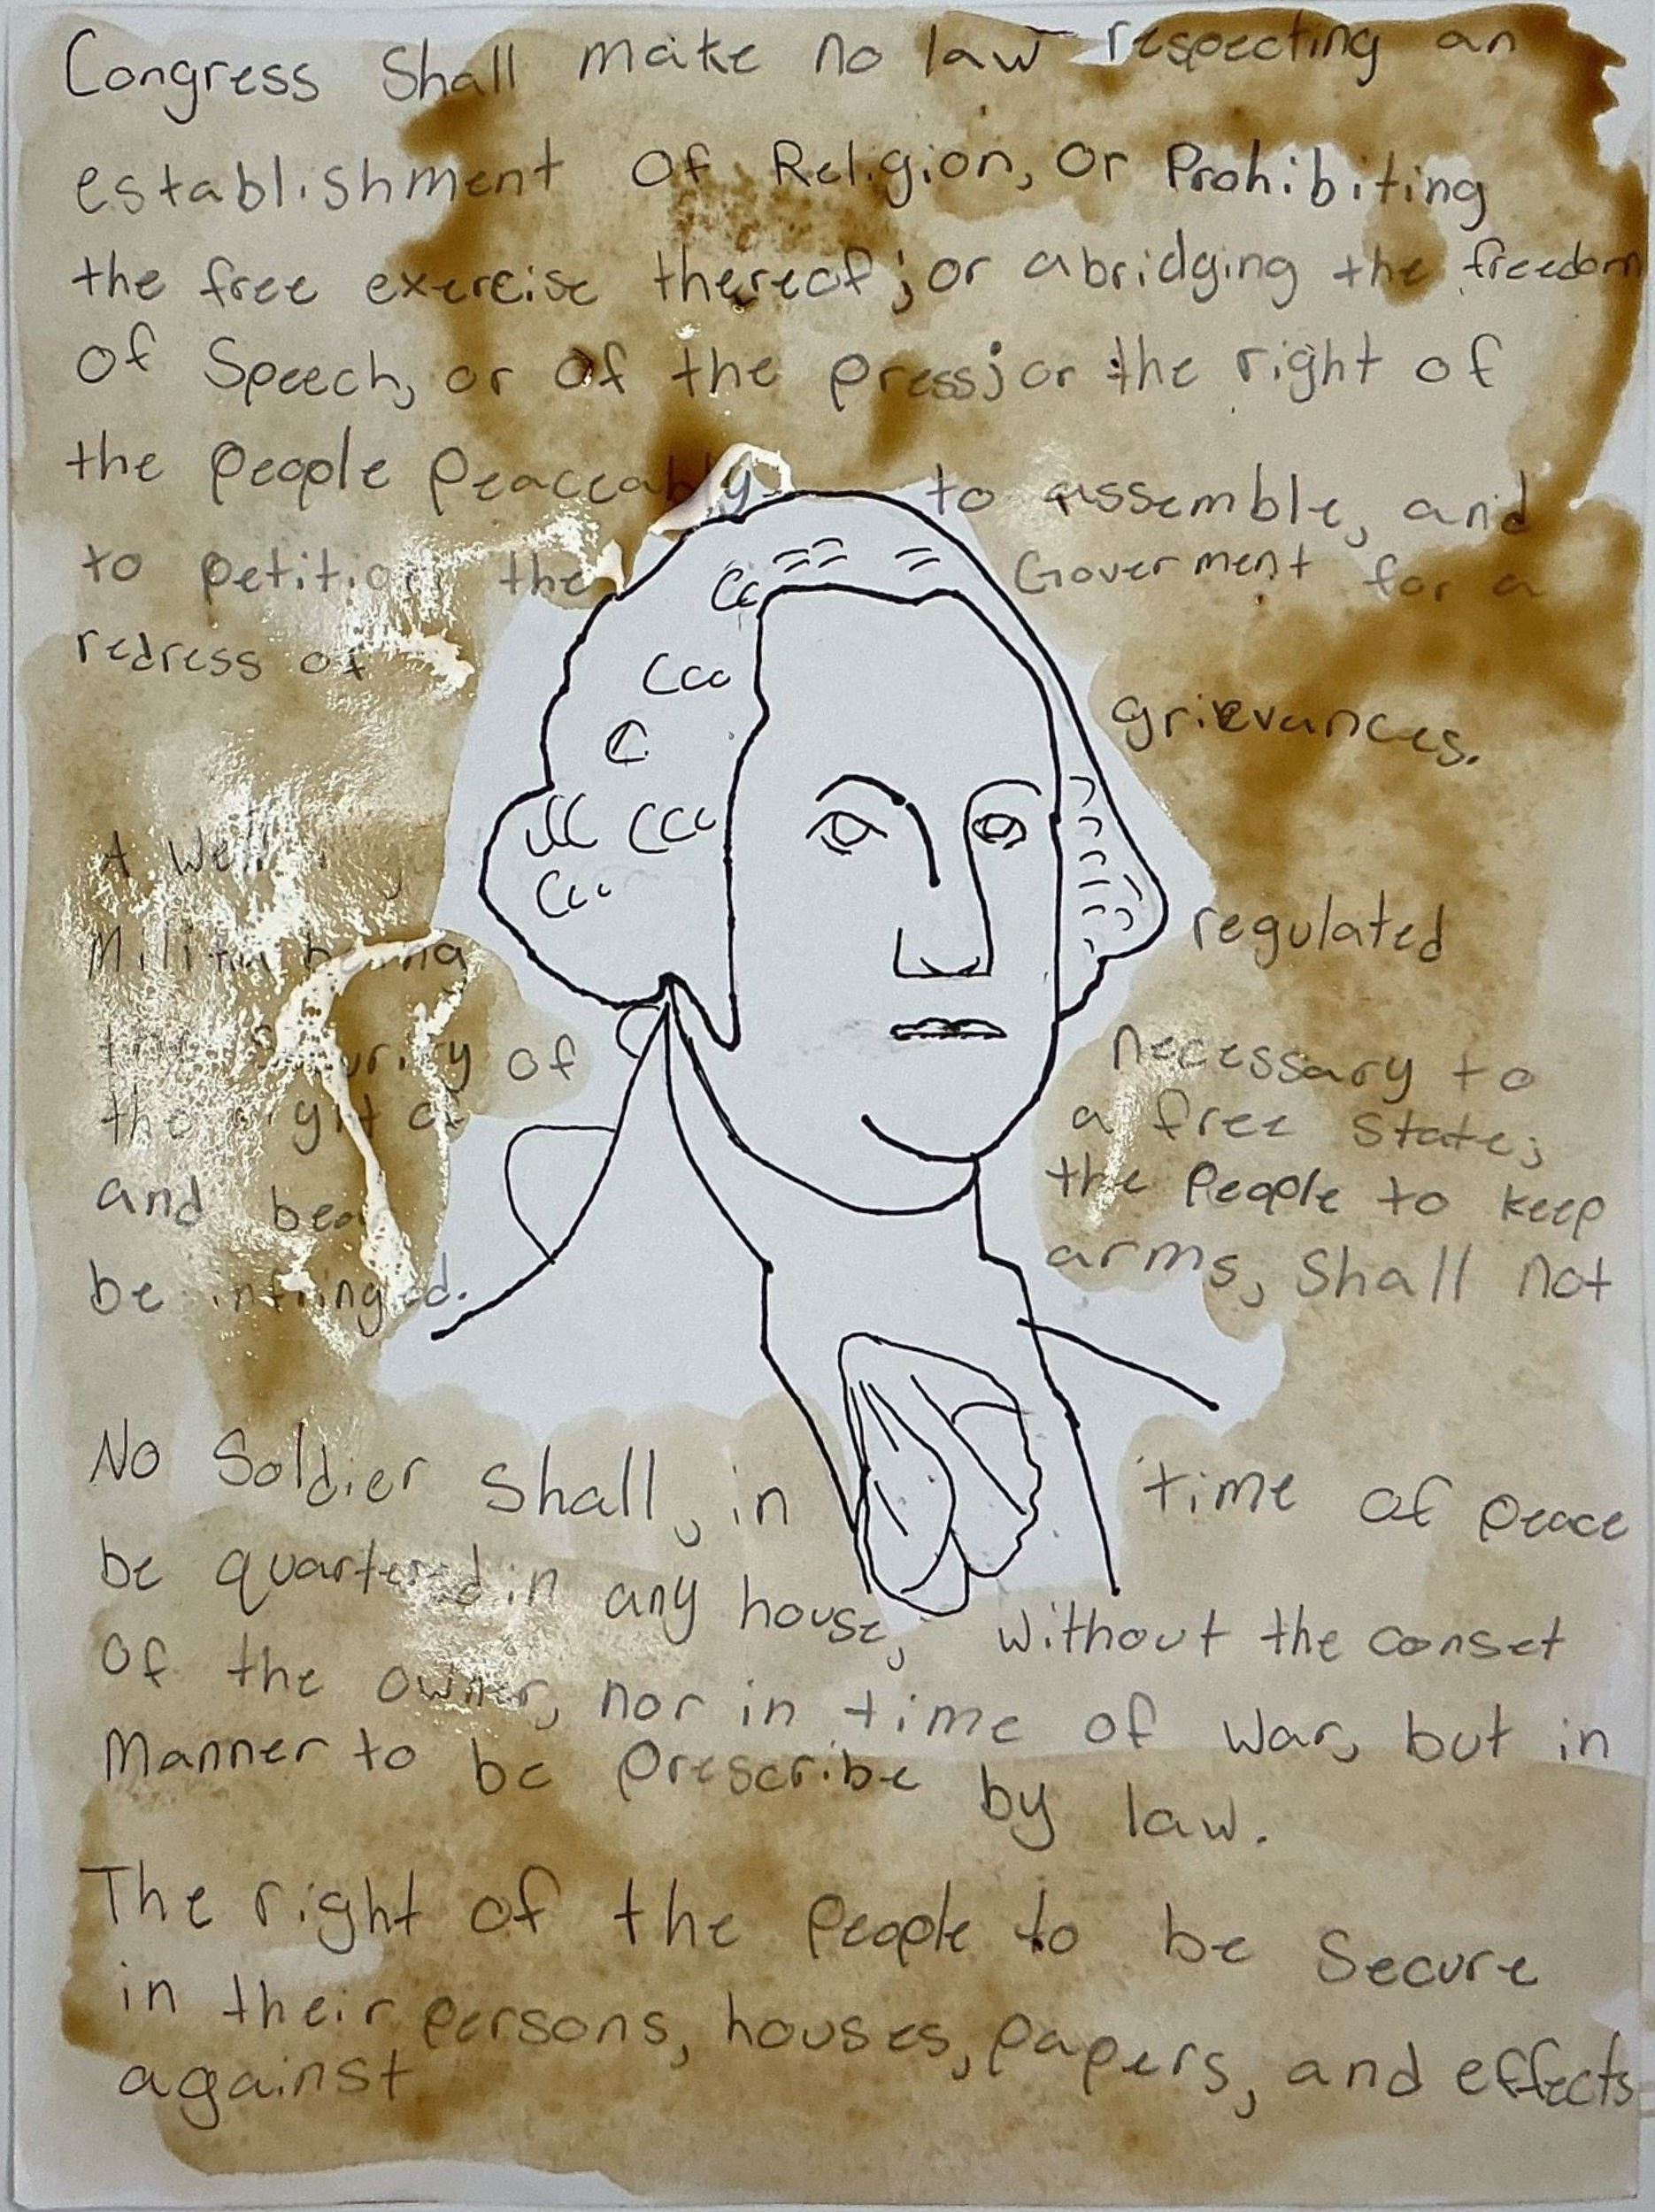 Congress Shall make no law respecting an
establishment Of Religion, Or Prohibiting
the free exercise thereof; or abridging the freedom
Of Speech, or of the press; or the right of
the People Peaceably to assemble, and
to petition the Goverment for a
redress of grievances.
A Well regulated
Militia being necessary to
the Security of a free State;
the right of the People to keep
and bear arms, Shall not
be infringed.
No Soldier Shall, in time of peace
be quartered in any house, without the conset
Of the owner, nor in time of War, but in
Manner to be Prescribe by law.
The right of the People to be Secure
in their persons, houses, papers, and effects
against